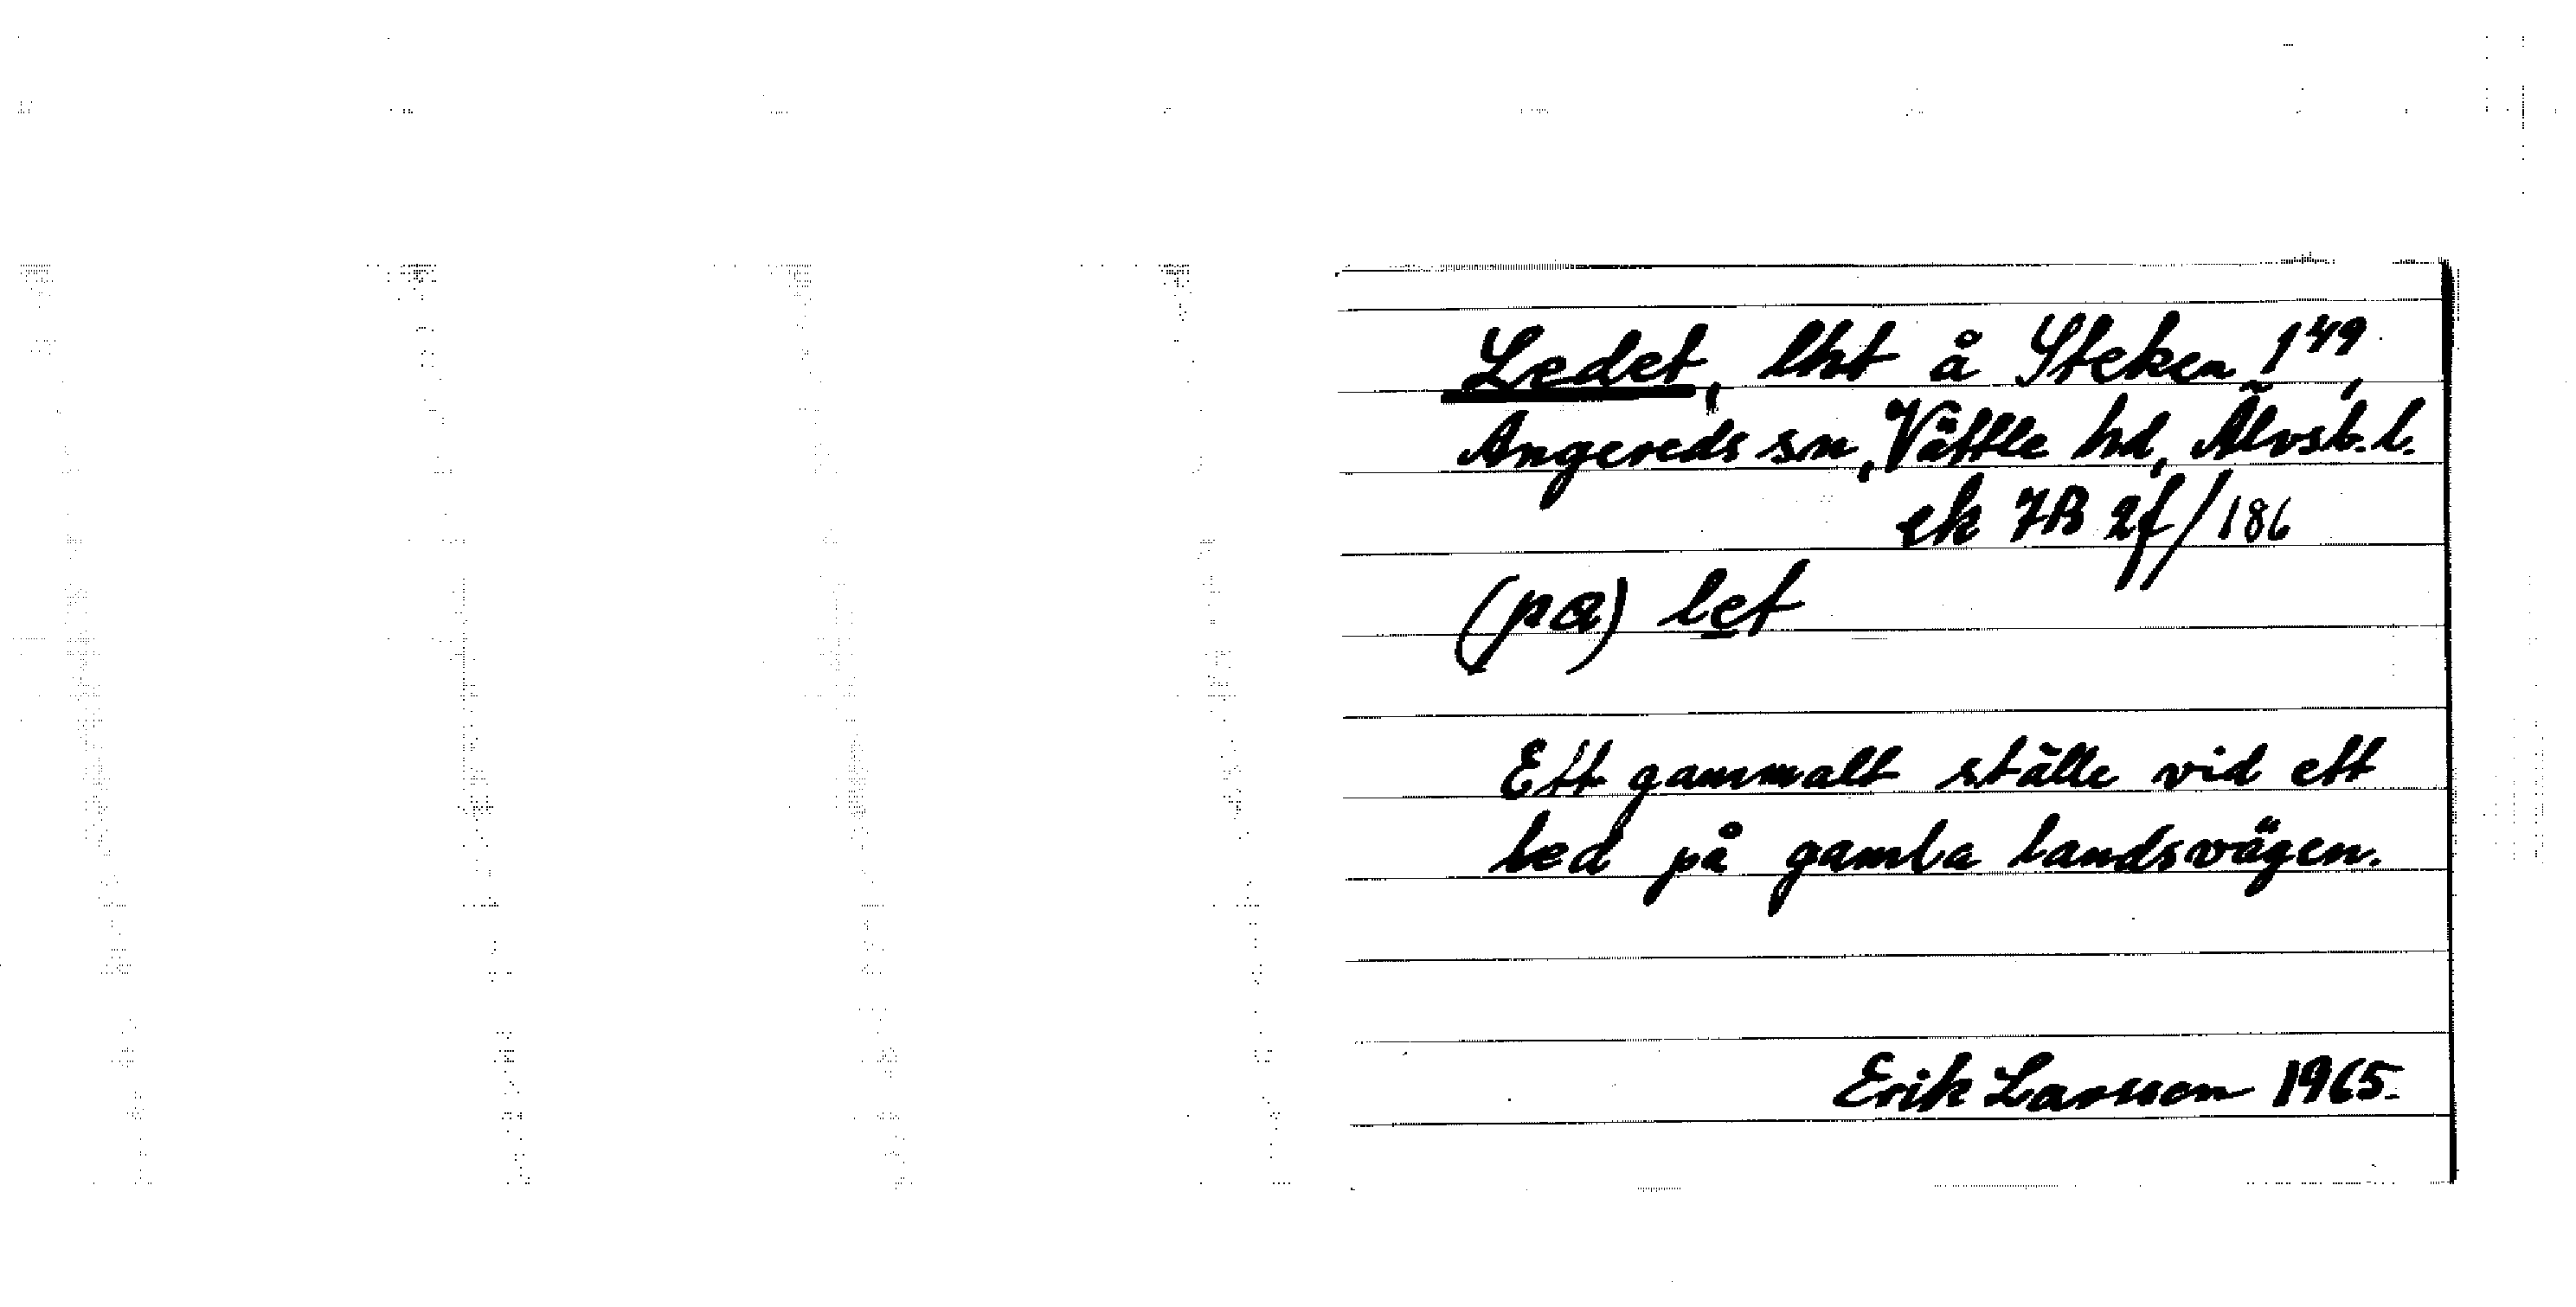 Ledet, lht å Steken 1⁴⁹,
Angereds sn, Vättle hd, Älvsb. l.
ek 7B 2f/186
(pɑ) le̲t
Ett gammalt ställe vid ett
led på gamla landsvägen.
Erik Larsson 1965.